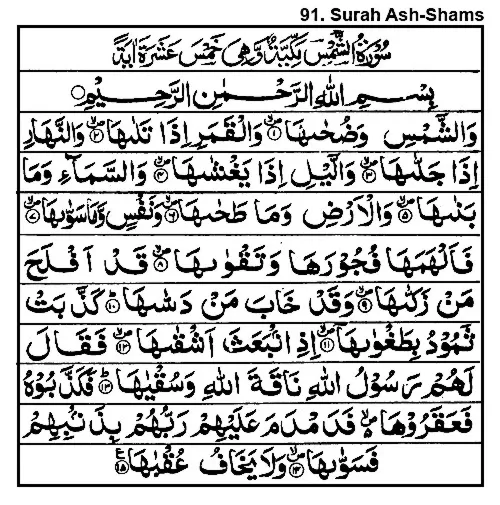 91. Surah Ash-Shams
سُوْرَةُ الشَّمْسِ مَكِّيَّةٌ وَّهِيَ خَمْسَ عَشَرَةَ اٰيَةً
بِسْمِ اللهِ الرَّحْمٰنِ الرَّحِيْمِ
وَالشَّمْسِ وَضُحٰىهَا ۙ۝۱ وَالْقَمَرِ اِذَا تَلٰىهَا ۙ۝۲ وَالنَّهَارِ
اِذَا جَلّٰىهَا ۙ۝۳ وَالَّيْلِ اِذَا يَغْشٰىهَا ۙ۝۴ وَالسَّمَآءِ وَمَا
بَنٰىهَا ۙ۝۵ وَالْاَرْضِ وَمَا طَحٰىهَا ۙ۝۶ وَنَفْسٍ وَّمَا سَوّٰىهَا ۙ۝۷
فَاَلْهَمَهَا فُجُوْرَهَا وَتَقْوٰىهَا ۙ۝۸ قَدْ اَفْلَحَ
مَنْ زَكّٰىهَا ۙ۝۹ وَقَدْ خَابَ مَنْ دَسّٰىهَا ؕ۝۱۰ كَذَّبَتْ
ثَمُوْدُ بِطَغْوٰىهَا ۙ۝۱۱ اِذِ انْۢبَعَثَ اَشْقٰىهَا ۙ۝۱۲ فَقَالَ
لَهُمْ رَسُوْلُ اللهِ نَاقَةَ اللهِ وَسُقْيٰهَا ؕ۝۱۳ فَكَذَّبُوْهُ
فَعَقَرُوْهَا ۙ فَدَمْدَمَ عَلَيْهِمْ رَبُّهُمْ بِذَنْۢبِهِمْ
فَسَوّٰىهَا ۙ۝۱۴ وَلَا يَخَافُ عُقْبٰهَا ۝۱۵ ع